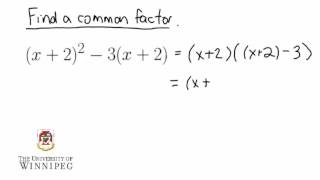 Find a common factor.
(x + 2)² − 3(x + 2) = (x+2)((x+2)−3)
= (x+
THE UNIVERSITY OF
WINNIPEG